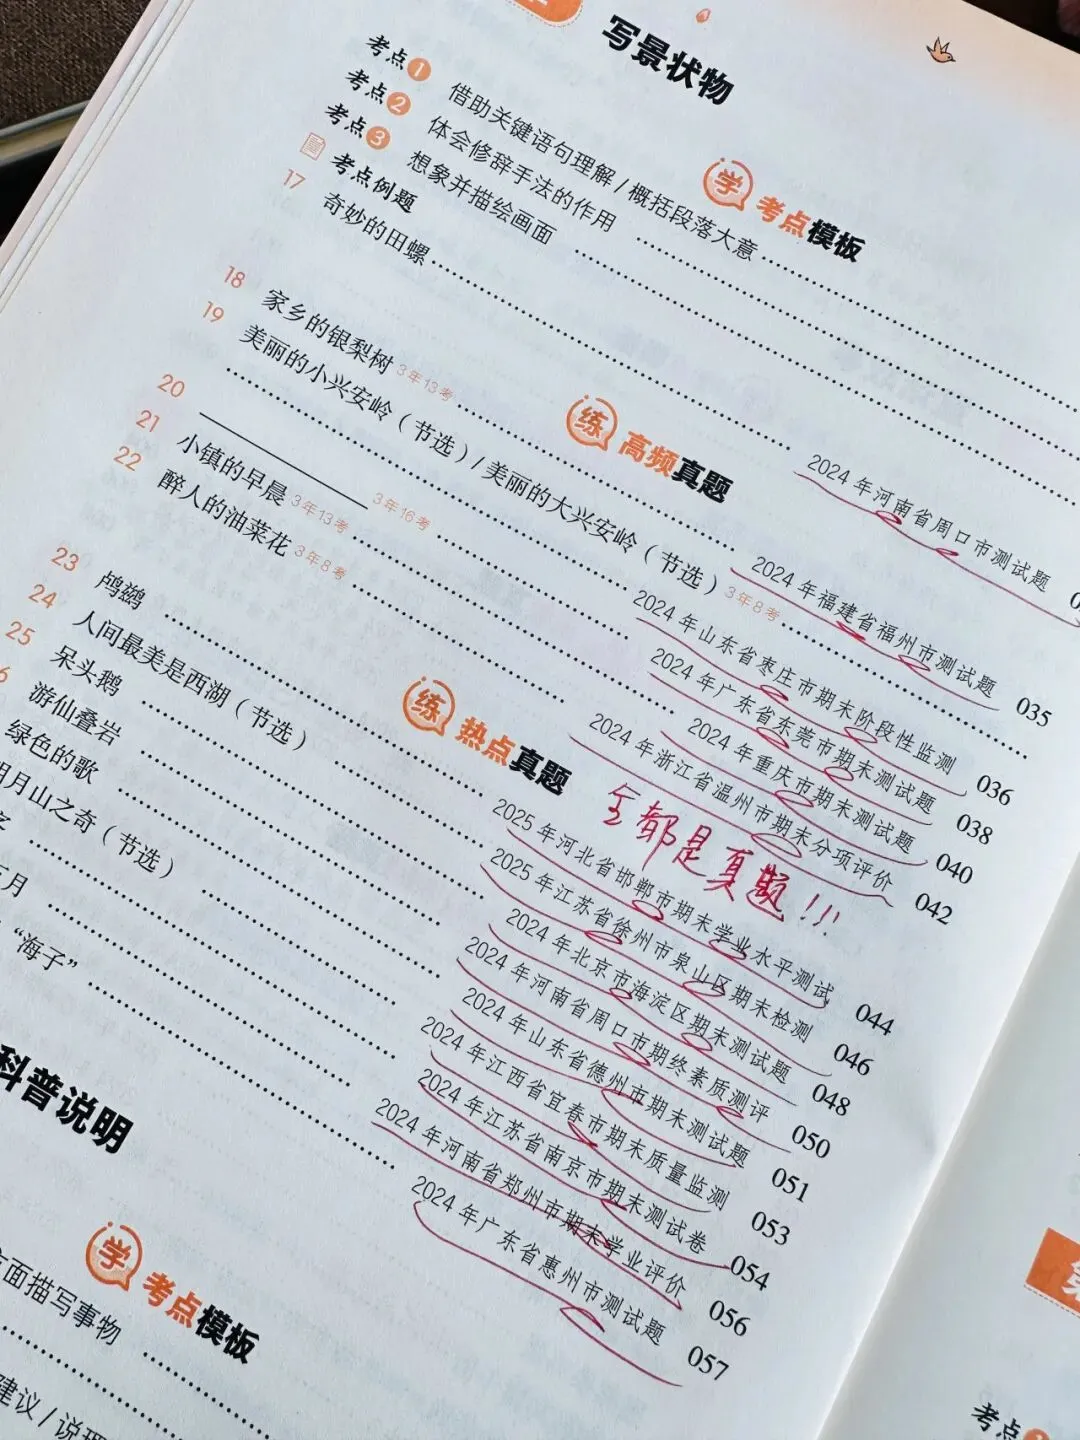 写景状物
学 考点模板
考点1 借助关键语句理解/概括段落大意
考点2 体会修辞手法的作用
考点3 想象并描绘画面
考点例题
17 奇妙的田螺 2024年河南省周口市测试题
练 高频真题
18 家乡的银梨树 3年13考 2024年福建省福州市测试题 035
19 美丽的小兴安岭(节选)/美丽的大兴安岭(节选) 3年8考
2024年山东省枣庄市期末阶段性监测 036
20 3年16考 2024年广东省东莞市期末测试题 038
21 小镇的早晨 3年13考 2024年重庆市期末测试题 040
22 醉人的油菜花 3年8考 2024年浙江省温州市期末分项评价 042
练 热点真题
全都是真题!!!
23 鸬鹚 2025年河北省邯郸市期末学业水平测试 044
24 人间最美是西湖(节选) 2025年江苏省徐州市泉山区期末检测 046
25 呆头鹅 2024年北京市海淀区期末测试题 048
6 游仙叠岩 2024年河南省周口市期终素质测评 050
绿色的歌 2024年山东省德州市期末测试题 051
明月山之奇(节选) 2024年江西省宜春市期末质量监测 053
2024年江苏省南京市期末测试卷 054
月 2024年河南省郑州市期末学业评价 056
“海子” 2024年广东省惠州市测试题 057
科普说明
学 考点模板
方面描写事物
建议/说理
考点